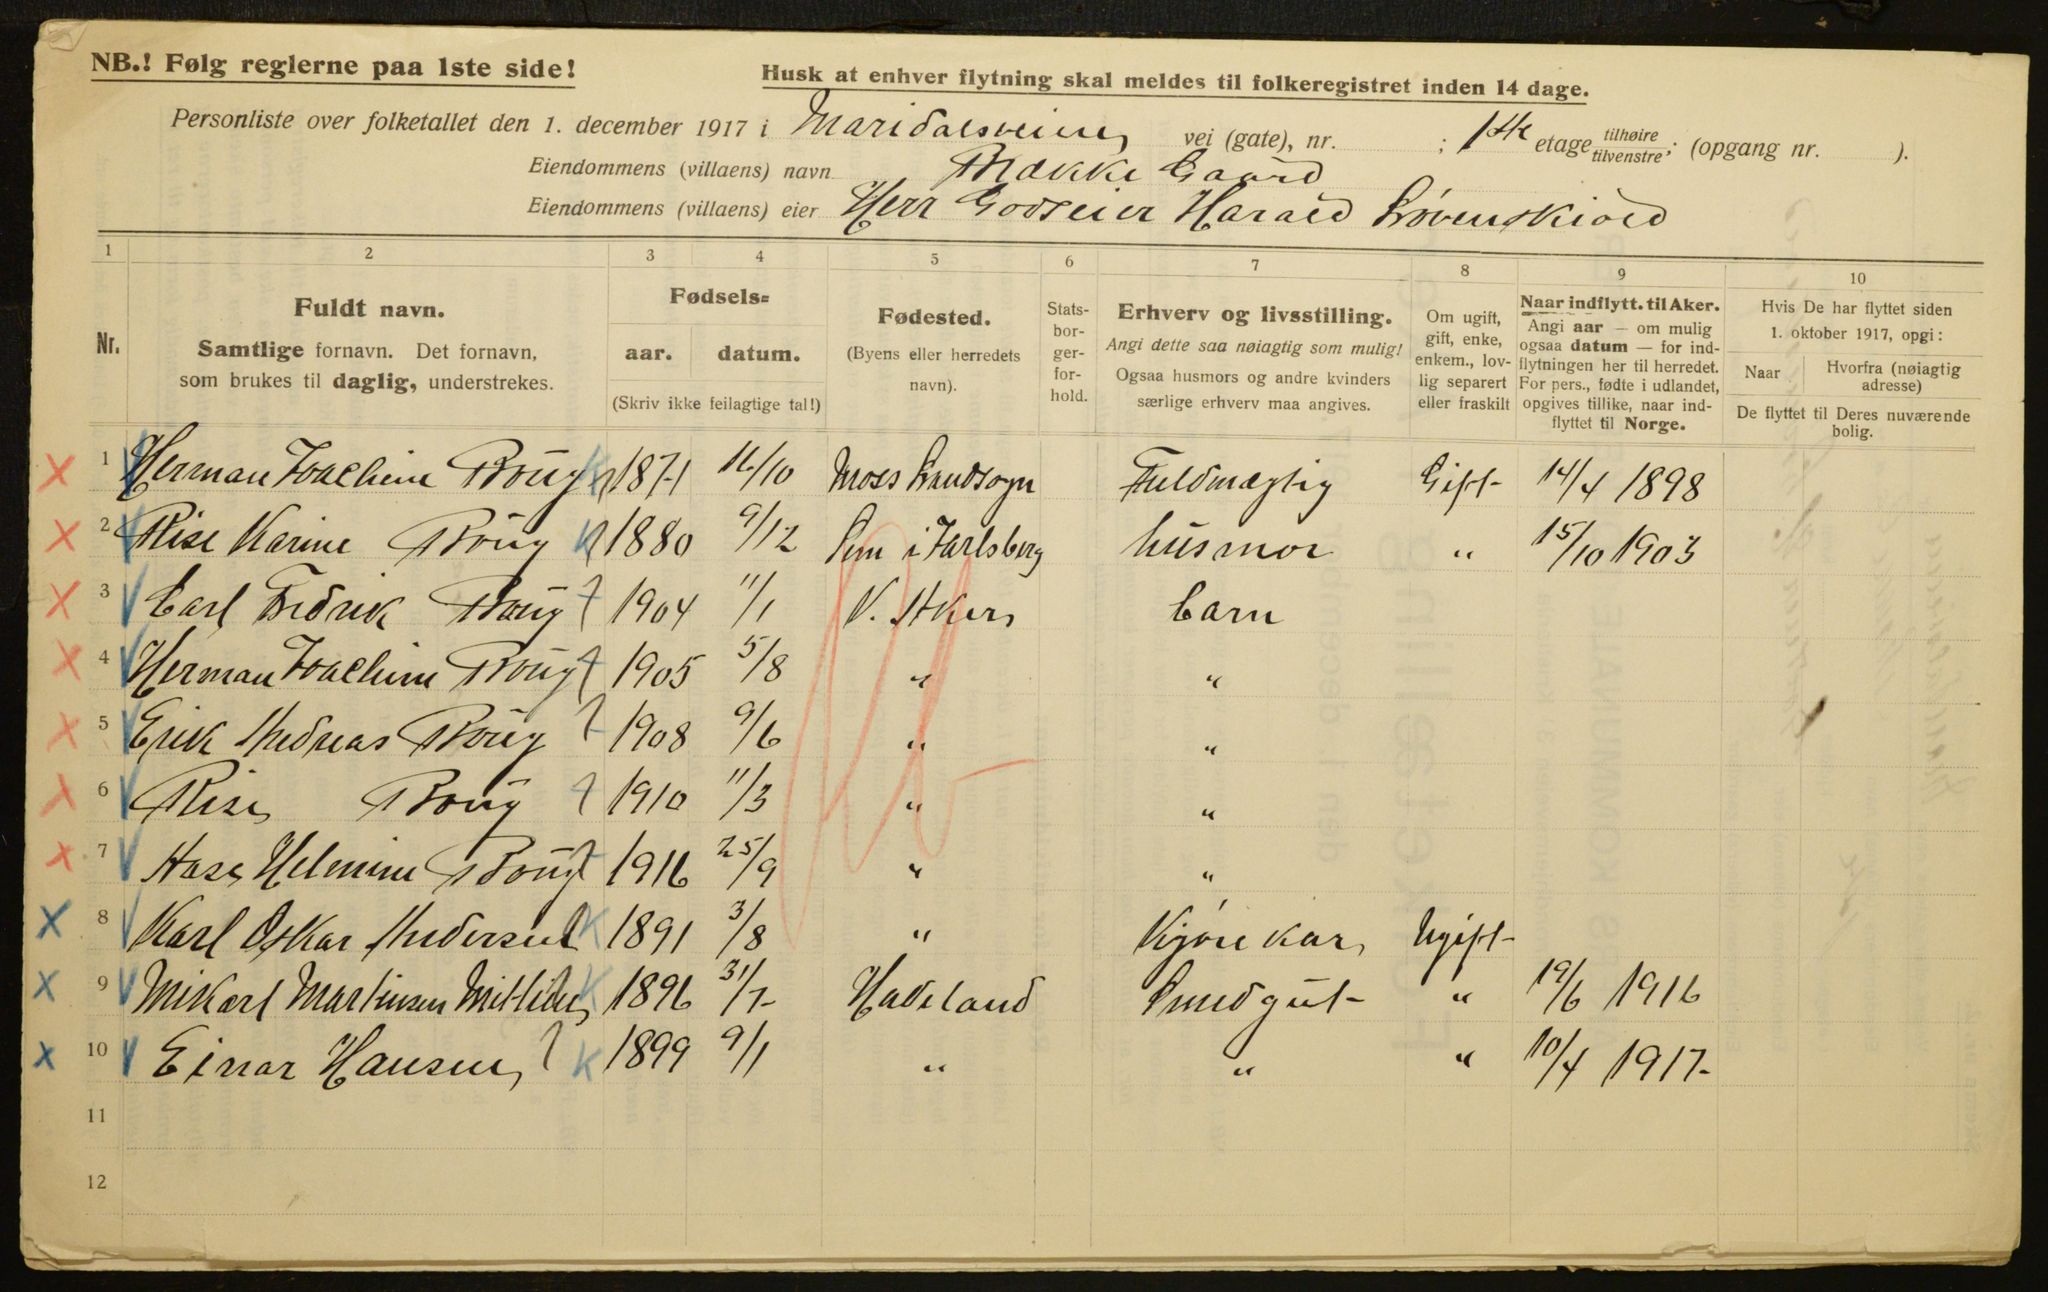 NB.! Følg reglerne paa 1ste side!
Husk at enhver flytning skal meldes til folkeregistret inden 14 dage.
Personliste over folketallet den 1. december 1917 i Maridalsveien vei (gate), nr. ; 1ste etage tilhøire tilvenstre; (opgang nr. ).
Eiendommens (villaens) navn Brække Gaard
Eiendommens (villaens) eier Herr Godseier Harald Løvenskiold
1 2 3 4 5 6 7 8 9 10
Nr.
Fuldt navn.
Samtlige fornavn. Det fornavn,
som brukes til daglig, understrekes.
Fødsels=
aar. datum.
(Skriv ikke feilagtige tal!)
Fødested.
(Byens eller herredets
navn).
Stats-
bor-
ger-
for-
hold.
Erhverv og livsstilling.
Angi dette saa nøiagtig som mulig!
Ogsaa husmors og andre kvinders
særlige erhverv maa angives.
Om ugift,
gift, enke,
enkem., lov-
lig separert
eller fraskilt
Naar indflytt. til Aker.
Angi aar — om mulig
ogsaa datum — for ind-
flytningen her til herredet.
For pers., fødte i utlandet,
opgives tillike, naar ind-
flyttet til Norge.
Hvis De har flyttet siden
1. oktober 1917, opgi:
Naar Hvorfra (nøiagtig
adresse)
De flyttet til Deres nuværende
bolig.
1 Herman Joachim Boug 1871 16/10 Moss Landsogn Fuldmægtig Gift 14/4 1898
2 Karine Boug 1880 9/12 Sem i Jarlsberg husmor " 15/10 1903
3 Carl Fredrik Boug 1904 11/1 V. Aker barn
4 Herman Joachim Boug 1905 5/8 " "
5 Erik Andreas Boug 1908 9/6 " "
6 Boug 1910 11/3 " "
7 Aase Helmine Boug 1916 25/9 " "
8 Karl Oskar Andersen 1891 3/8 " Kjørekar Ugift
9 Mikael Martinsen 1896 31/7 Hadeland Smedgut " 19/6 1916
10 Einar Hansen 1899 9/1 " " " 10/4 1917
11
12